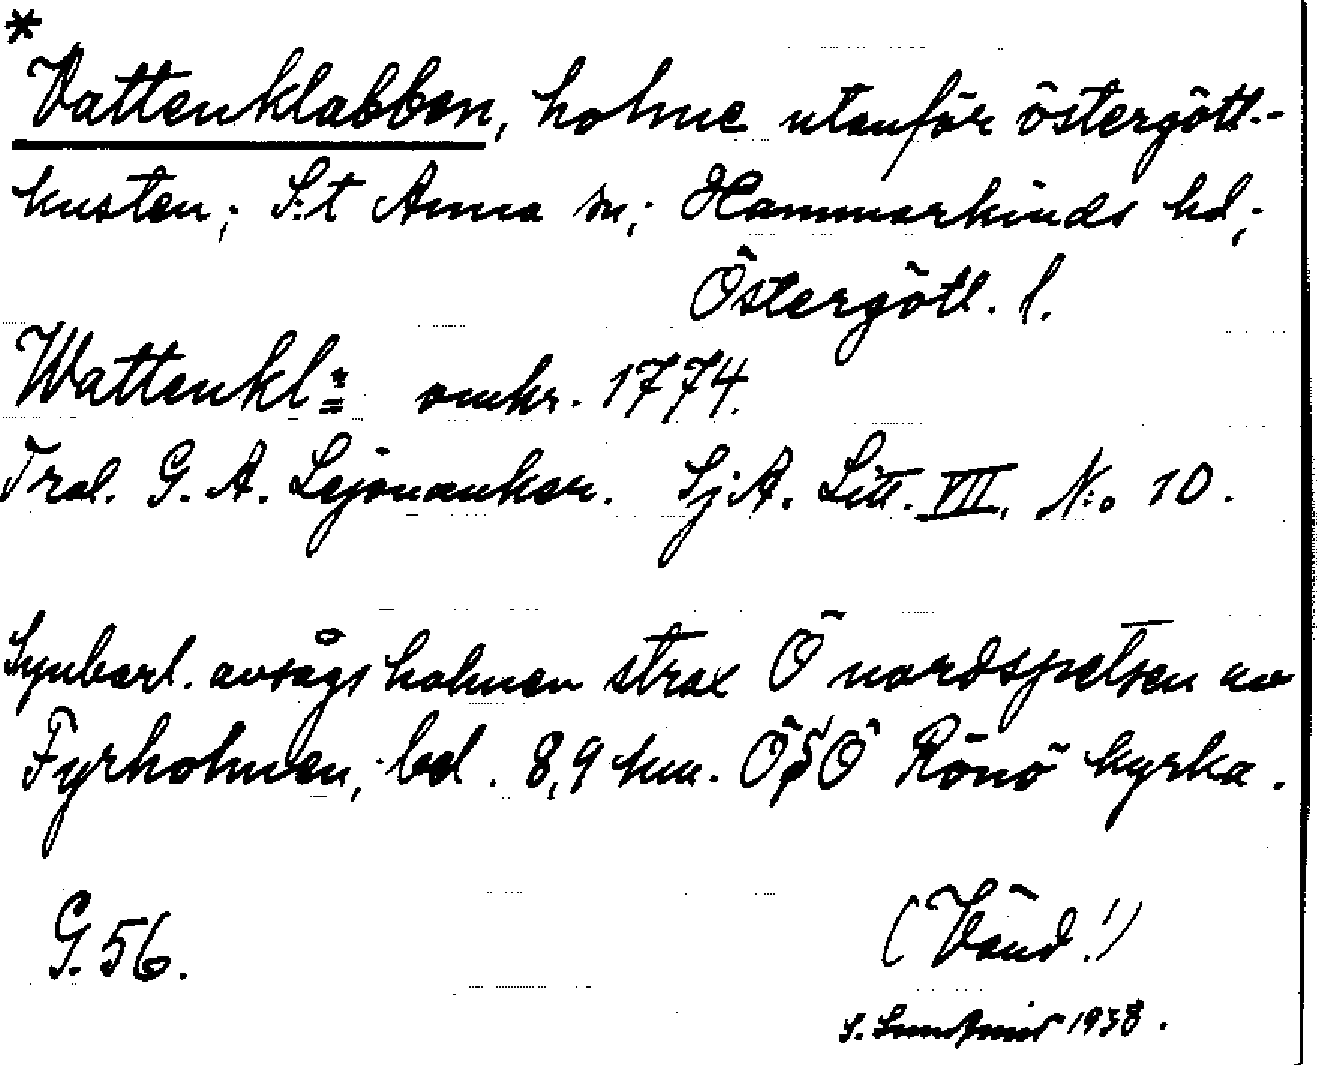 *
Vattenklabben, holme utanför östergötl.-
kusten; S:t Anna sn; Hammarkinds hd;
Östergötl. l.
Wattenkl= omkr. 1774.
Tral. G. A. Lejonanker. SjA. Litt. VII, No 10.
Synbarl. avsågs holmen strax Ö nordspetsen av
Fyrholmen, bel. 8,9 km. ÖSÖ Rönö kyrka.
G. 56. (Vänd!)
S. Sundqvist 1938.